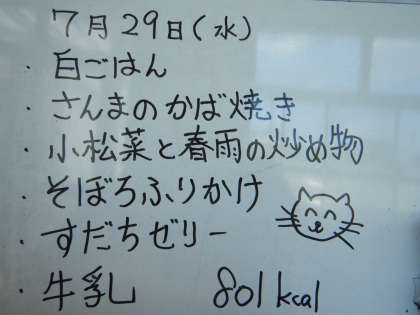 7月29日(水)
・白ごはん
・さんまのかば焼き
・小松菜と春雨の炒め物
・そぼろふりかけ
・すだちゼリー
・牛乳 801kcal